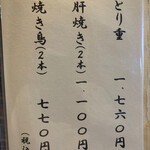 とり重 一、七六〇円
肝焼き(2本) 一、一〇〇円
焼き鳥(2本) 七七〇円
(税込